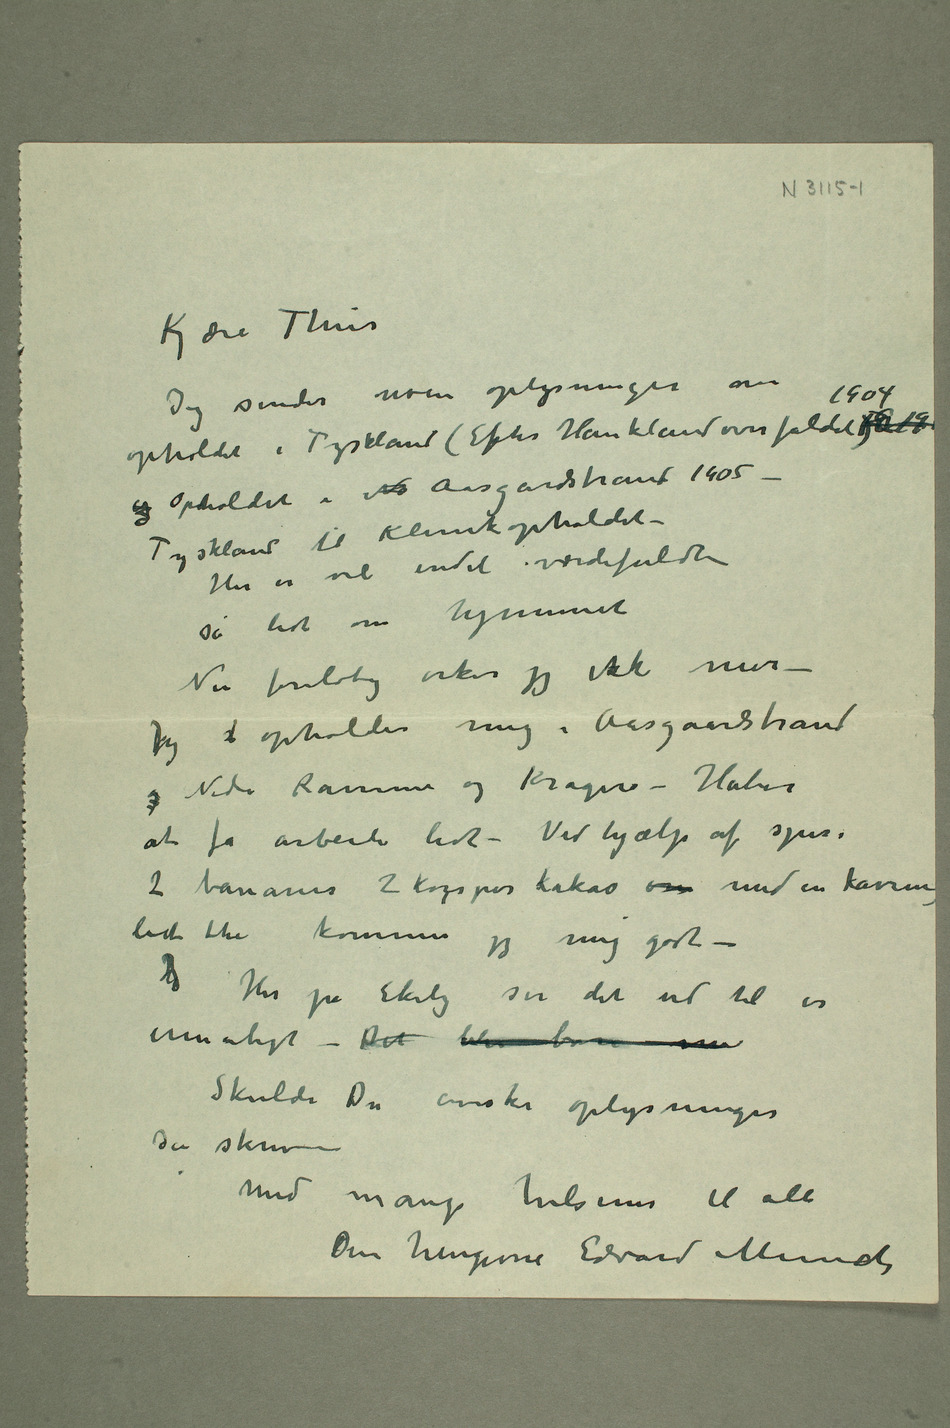 N 3115-1
Kjære Thiis
Jeg sender noen oplysninger om
opholdet i Tyskland (Efter Hauklandoverfaldet) 1904
og Opholdet i Aasgardstrand 1905 –
Tyskland til Klinikopholdet –
Her er vel endel værdifuldt –
så lidt om hjemmet
Nu foreløbig orker jeg ikke mer –
Jeg opholder mig i Aasgaardstrand
og Nedre Ramme og Kragerø – Håber
at få arbeide lidt – Ved hjælp af spise
2 bananer 2 kogspor kakao med en kavring
lidt the kommer jeg mig godt –
Her på Ekely ser det ud til os
umuligt – Det blir bare
Skulde Du ønske oplysninger
så skriv –
Med mange hilsener til alle
Din hengivne Edvard Munch